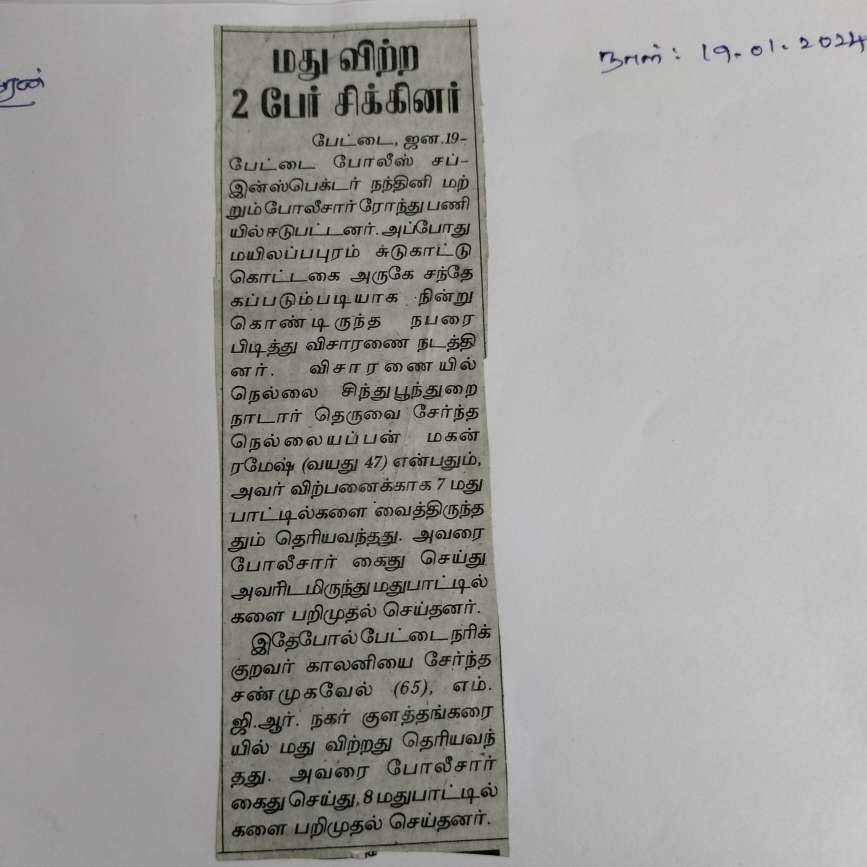 நாள்: 19-01-2024
மது விற்ற
2 பேர் சிக்கினர்
பேட்டை, ஜன.19-
பேட்டை போலீஸ் சப்-
இன்ஸ்பெக்டர் நந்தினி மற்
றும்போலீசார்ரோந்துபணி
யில்ஈடுபட்டனர்.அப்போது
மயிலப்பபுரம் சுடுகாட்டு
கொட்டகை அருகே சந்தே
கப்படும்படியாக நின்று
கொண்டிருந்த நபரை
பிடித்து விசாரணை நடத்தி
னர். விசாரணையில்
நெல்லை சிந்துபூந்துறை
நாடார் தெருவை சேர்ந்த
நெல்லையப்பன் மகன்
ரமேஷ் (வயது 47) என்பதும்,
அவர் விற்பனைக்காக 7 மது
பாட்டில்களை வைத்திருந்த
தும் தெரியவந்தது. அவரை
போலீசார் கைது செய்து
அவரிடமிருந்து மதுபாட்டில்
களை பறிமுதல் செய்தனர்.
இதேபோல் பேட்டை நரிக்
குறவர் காலனியை சேர்ந்த
சண்முகவேல் (65), எம்.
ஜி.ஆர். நகர் குளத்தங்கரை
யில் மது விற்றது தெரியவந்
தது. அவரை போலீசார்
கைது செய்து, 8 மதுபாட்டில்
களை பறிமுதல் செய்தனர்.